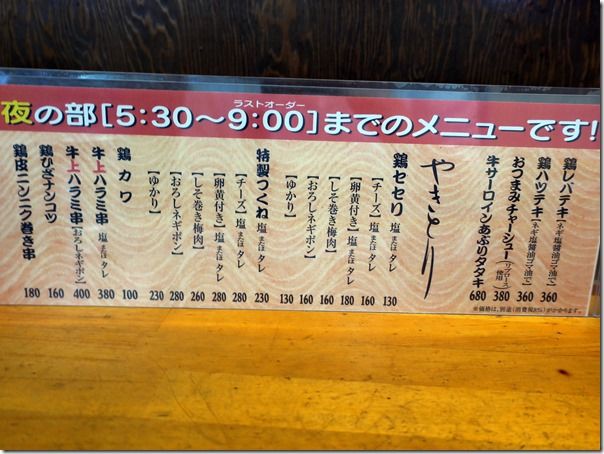 ラストオーダー
夜の部[5:30～9:00]までのメニューです!
鶏レバテキ【ネギ塩醤油ゴマ油で】 360
鶏ハツテキ【ネギ塩醤油ゴマ油で】 360
おつまみチャーシュー(リブロース使用) 380
牛サーロインあぶりタタキ 680
やきとり
鶏セセリ 塩またはタレ 130
【チーズ】塩またはタレ 160
【卵黄付き】塩またはタレ 180
【しそ巻き梅肉】 160
【おろしネギポン】 160
【ゆかり】 130
特製つくね 塩またはタレ 230
【チーズ】塩またはタレ 260
【卵黄付き】塩またはタレ 280
【しそ巻き梅肉】 260
【おろしネギポン】 280
【ゆかり】 230
鶏カワ 100
牛上ハラミ串 塩またはタレ 380
牛上ハラミ串【おろしネギポン】 400
鶏ひざナンコツ 160
鶏皮ニンニク巻き串 180
※価格は、別途(消費税8%)がかかります。